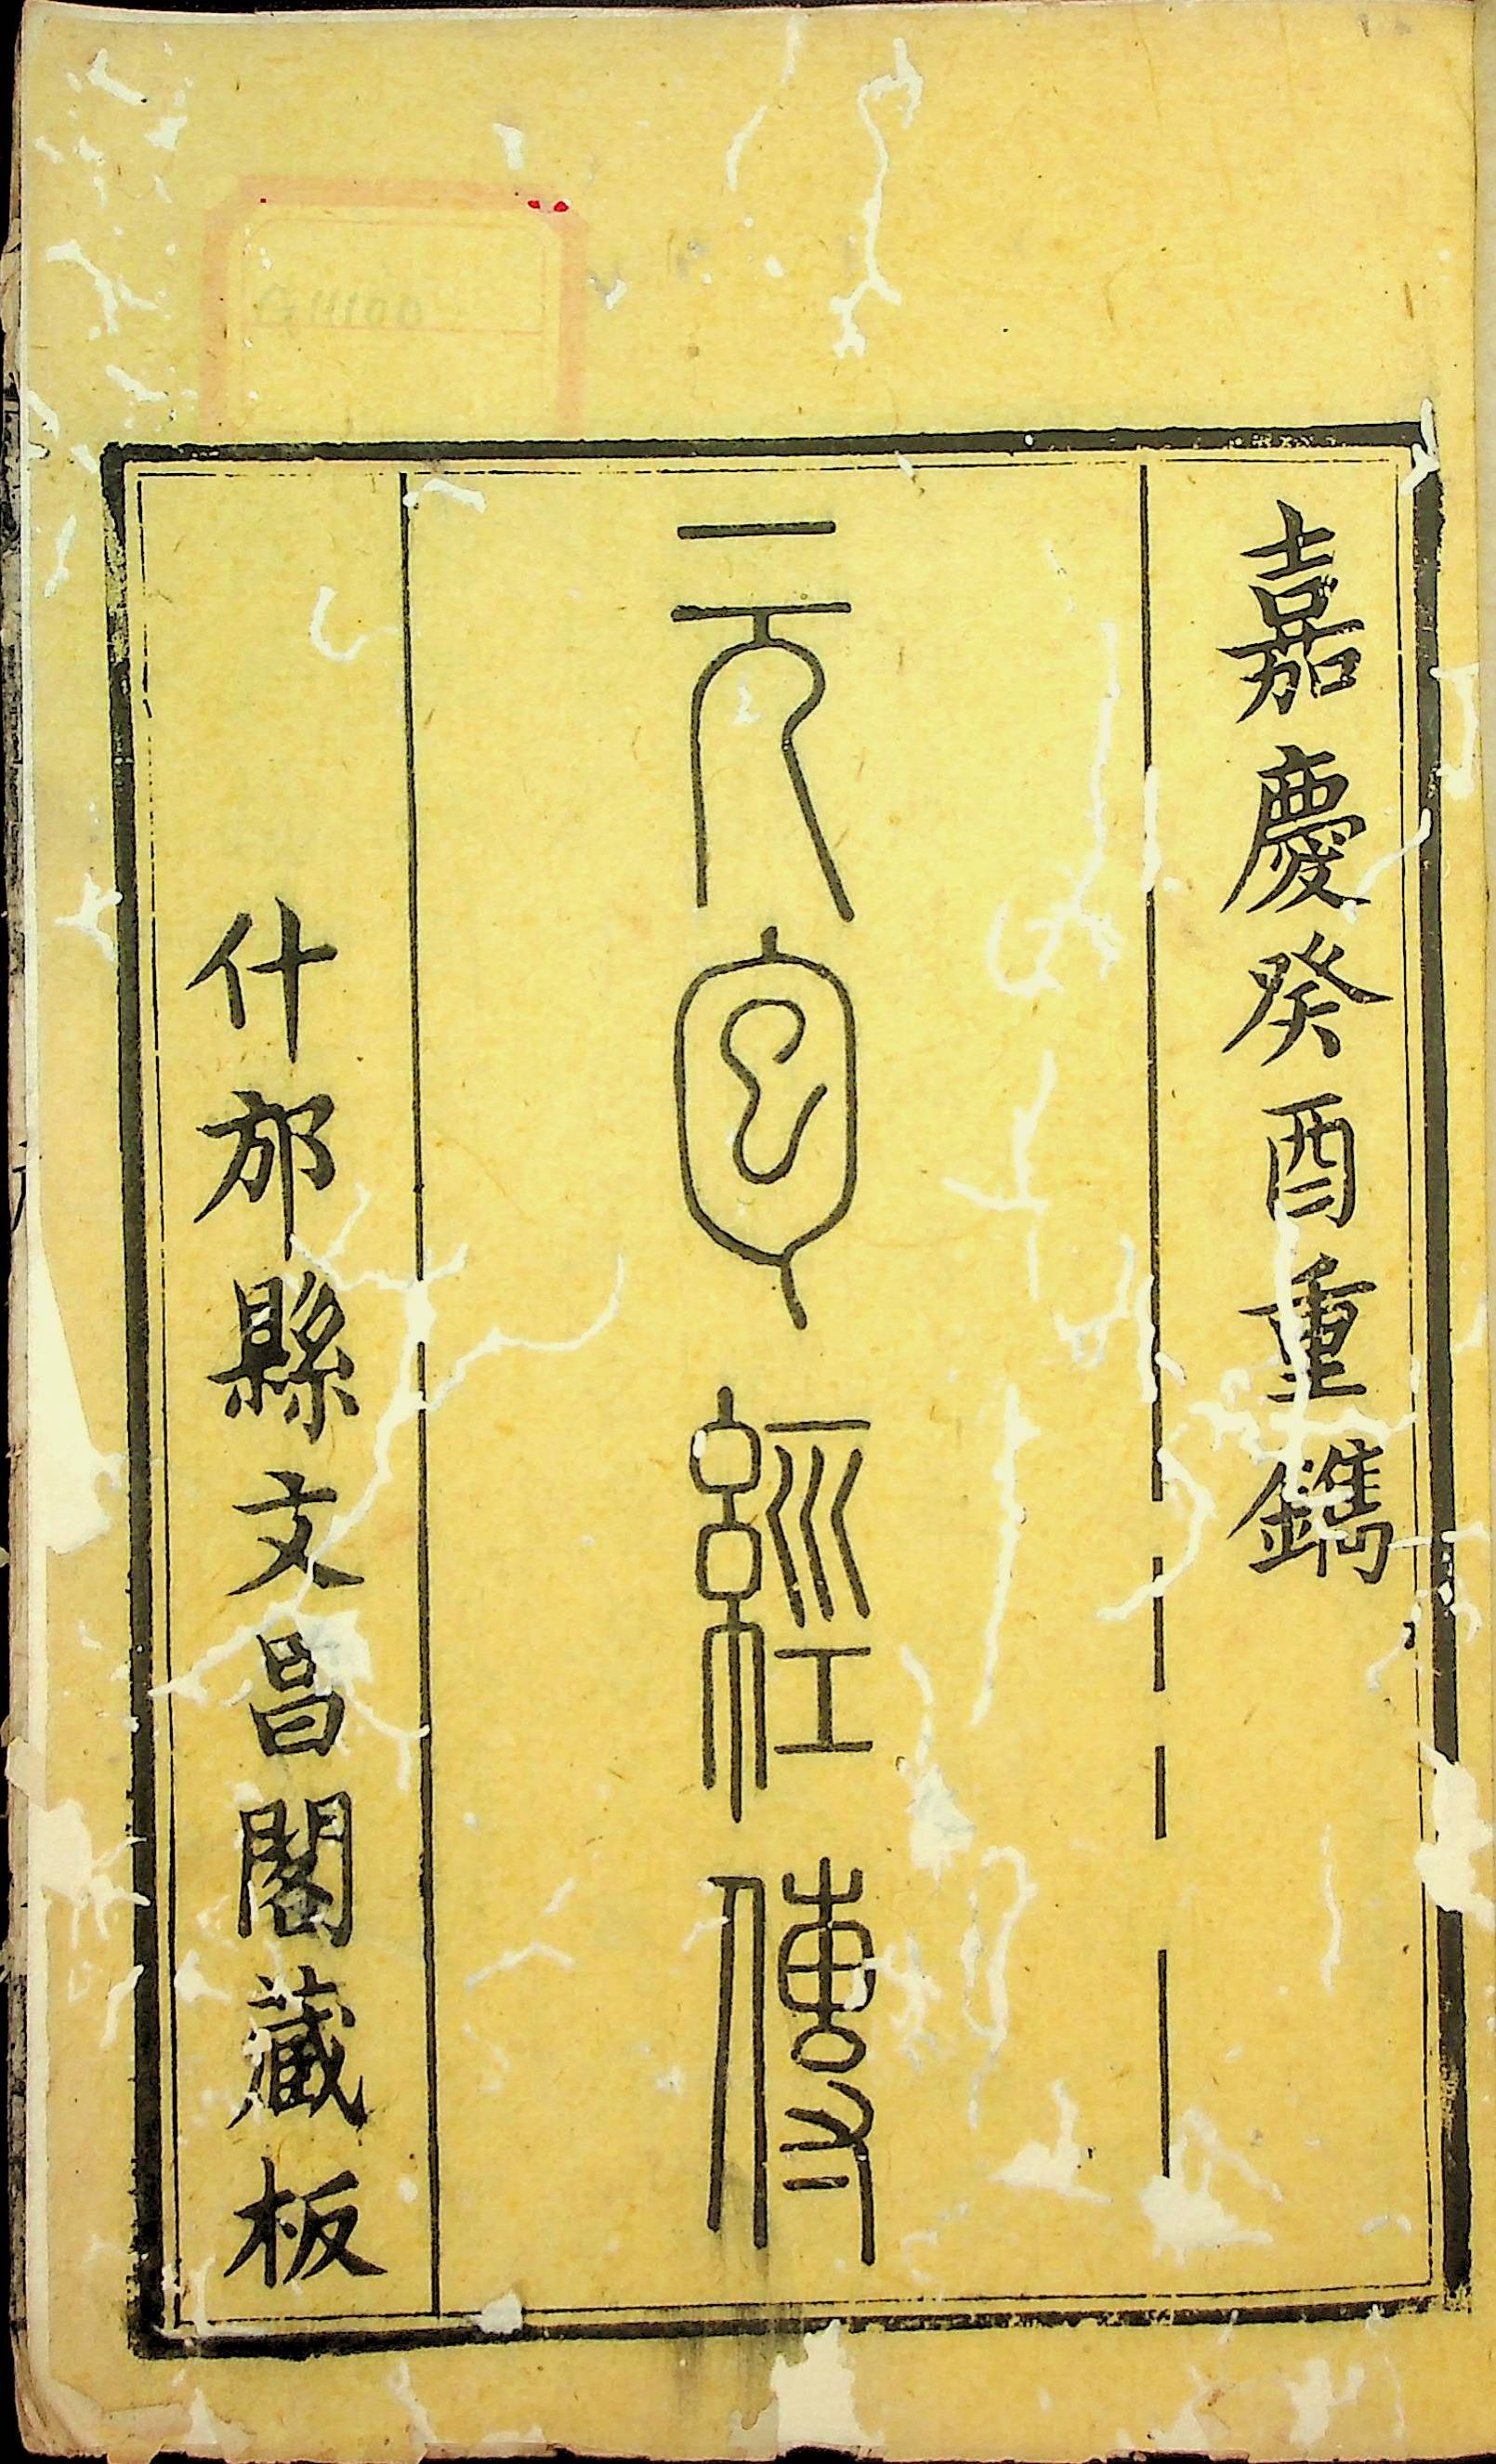 嘉慶癸酉重鐫
元包經傳
什邡縣文昌閣藏板